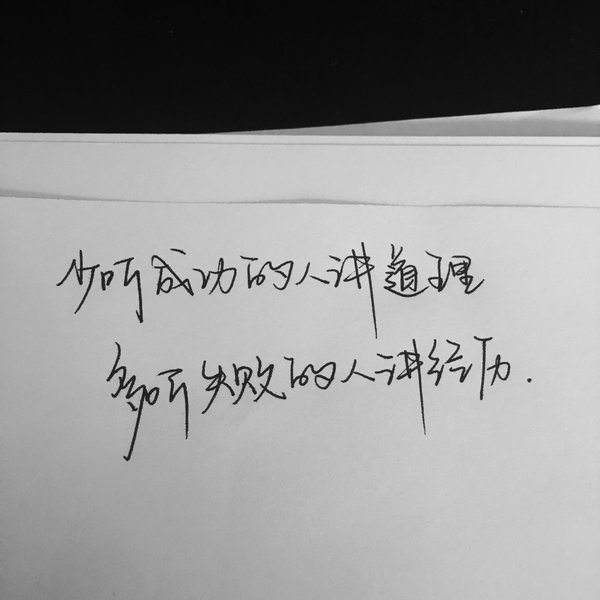 少听成功的人讲道理
多听失败的人讲经历.